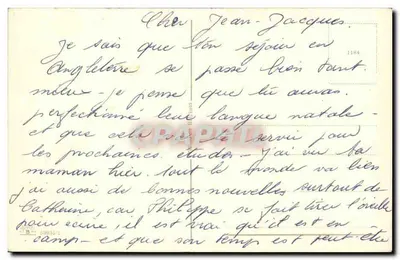 Cher Jean-Jacques.
Je sais que ton séjour en
Angleterre se passe bien tant
mieux - je pense que tu auras
perfectionné leur langue natale -
et que cela te servir pour
tes prochaines études - J'ai vu ta
maman hier. tout le monde va bien
j'ai aussi de bonnes nouvelles surtout de
Catherine, car Philippe se fait tirer l'oreille
pour écrire, il est vrai qu'il est en
camp - et que son temps est peut-être